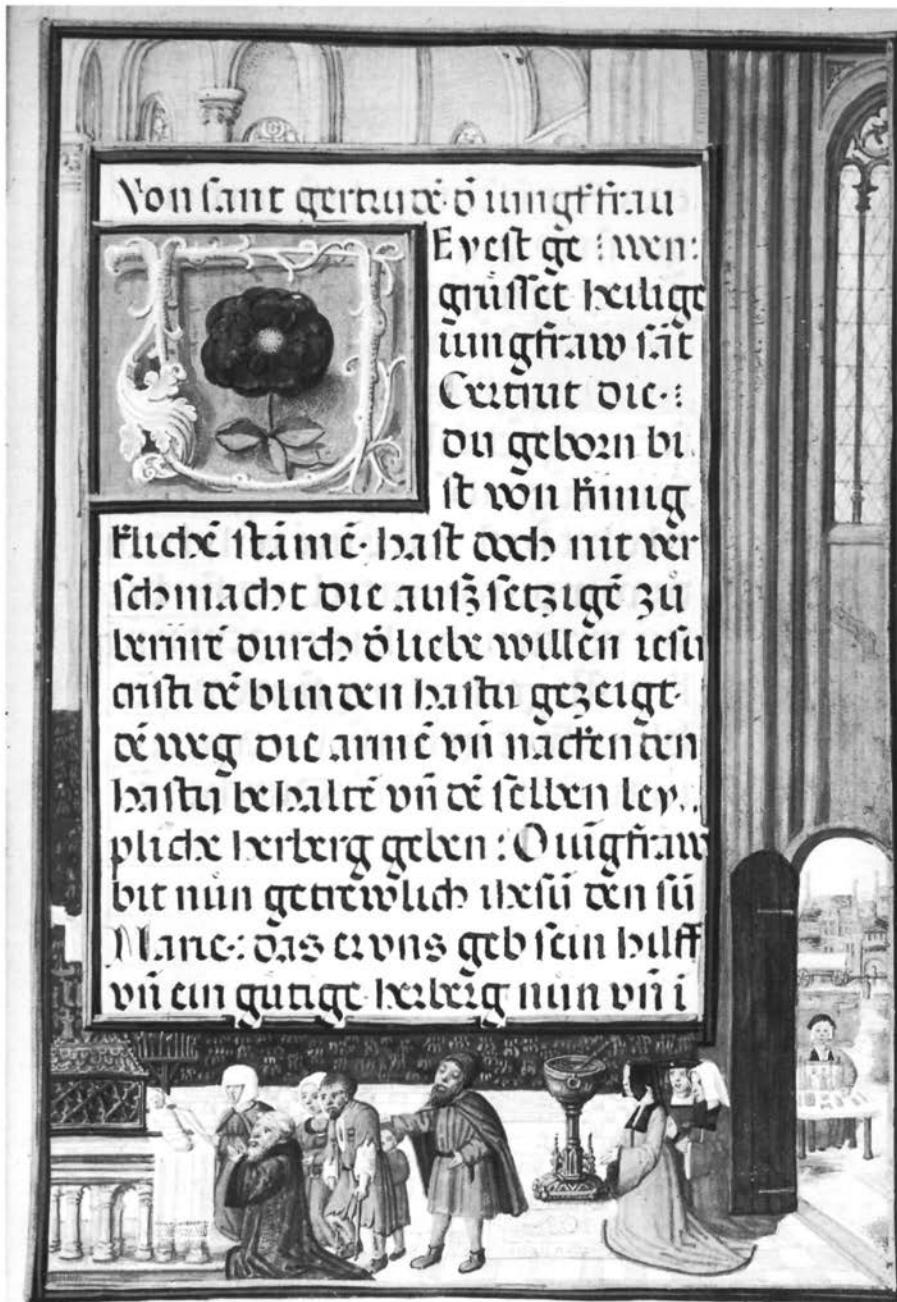 Von sant gertrudē· d̄ iungkfrau
Eyest ge : wen:
grüsset heilige
iungfraw sāt
Gertrut die·:
du geborn bi
st von künig
klichē stāmē· hast doch nit ver
schmacht die außsetzigē zů
berürē durch d̄ liebe willen iesu
cristi dē blinden hastu gezeigt·
dē weg die armē vn̄ nackenden
hastu behaltē vn̄ dē selben ley..
pliche herberg geben : O iūgfraw
bit nün getrewlich ihesū den sū
Marie·: das er vns geb sein hilff
vn̄ ein gutige· herberg nün vn̄ ī